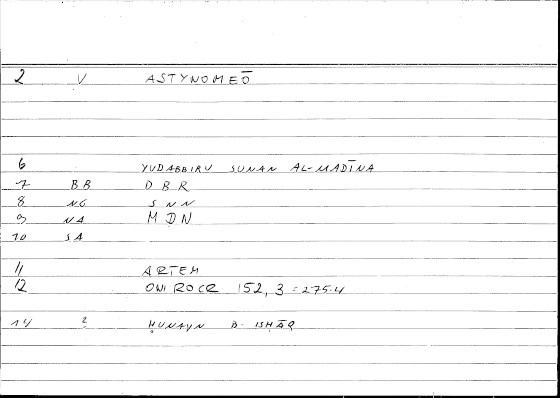 2 V ASTYNOMEŌ
6 YUDABBIRU SUNAN AL-MADĪNA
7 BB DBR
8 NG SNN
9 NA MDN
10 SA
11 ARTEM
12 ONIROCR 152, 3 = 275.4
14 2 ḤUNAYN B. ISḤĀQ